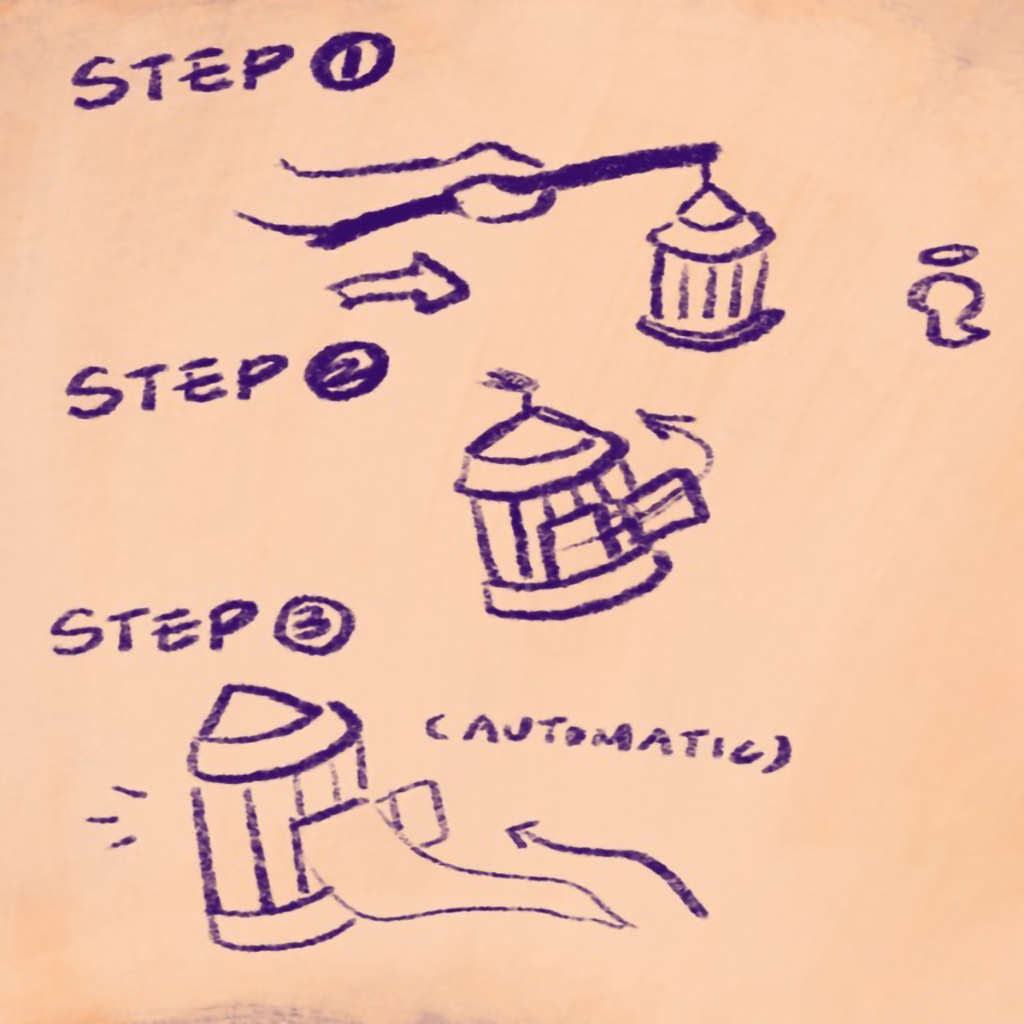 STEP 1
STEP 2
STEP 3
(AUTOMATIC)